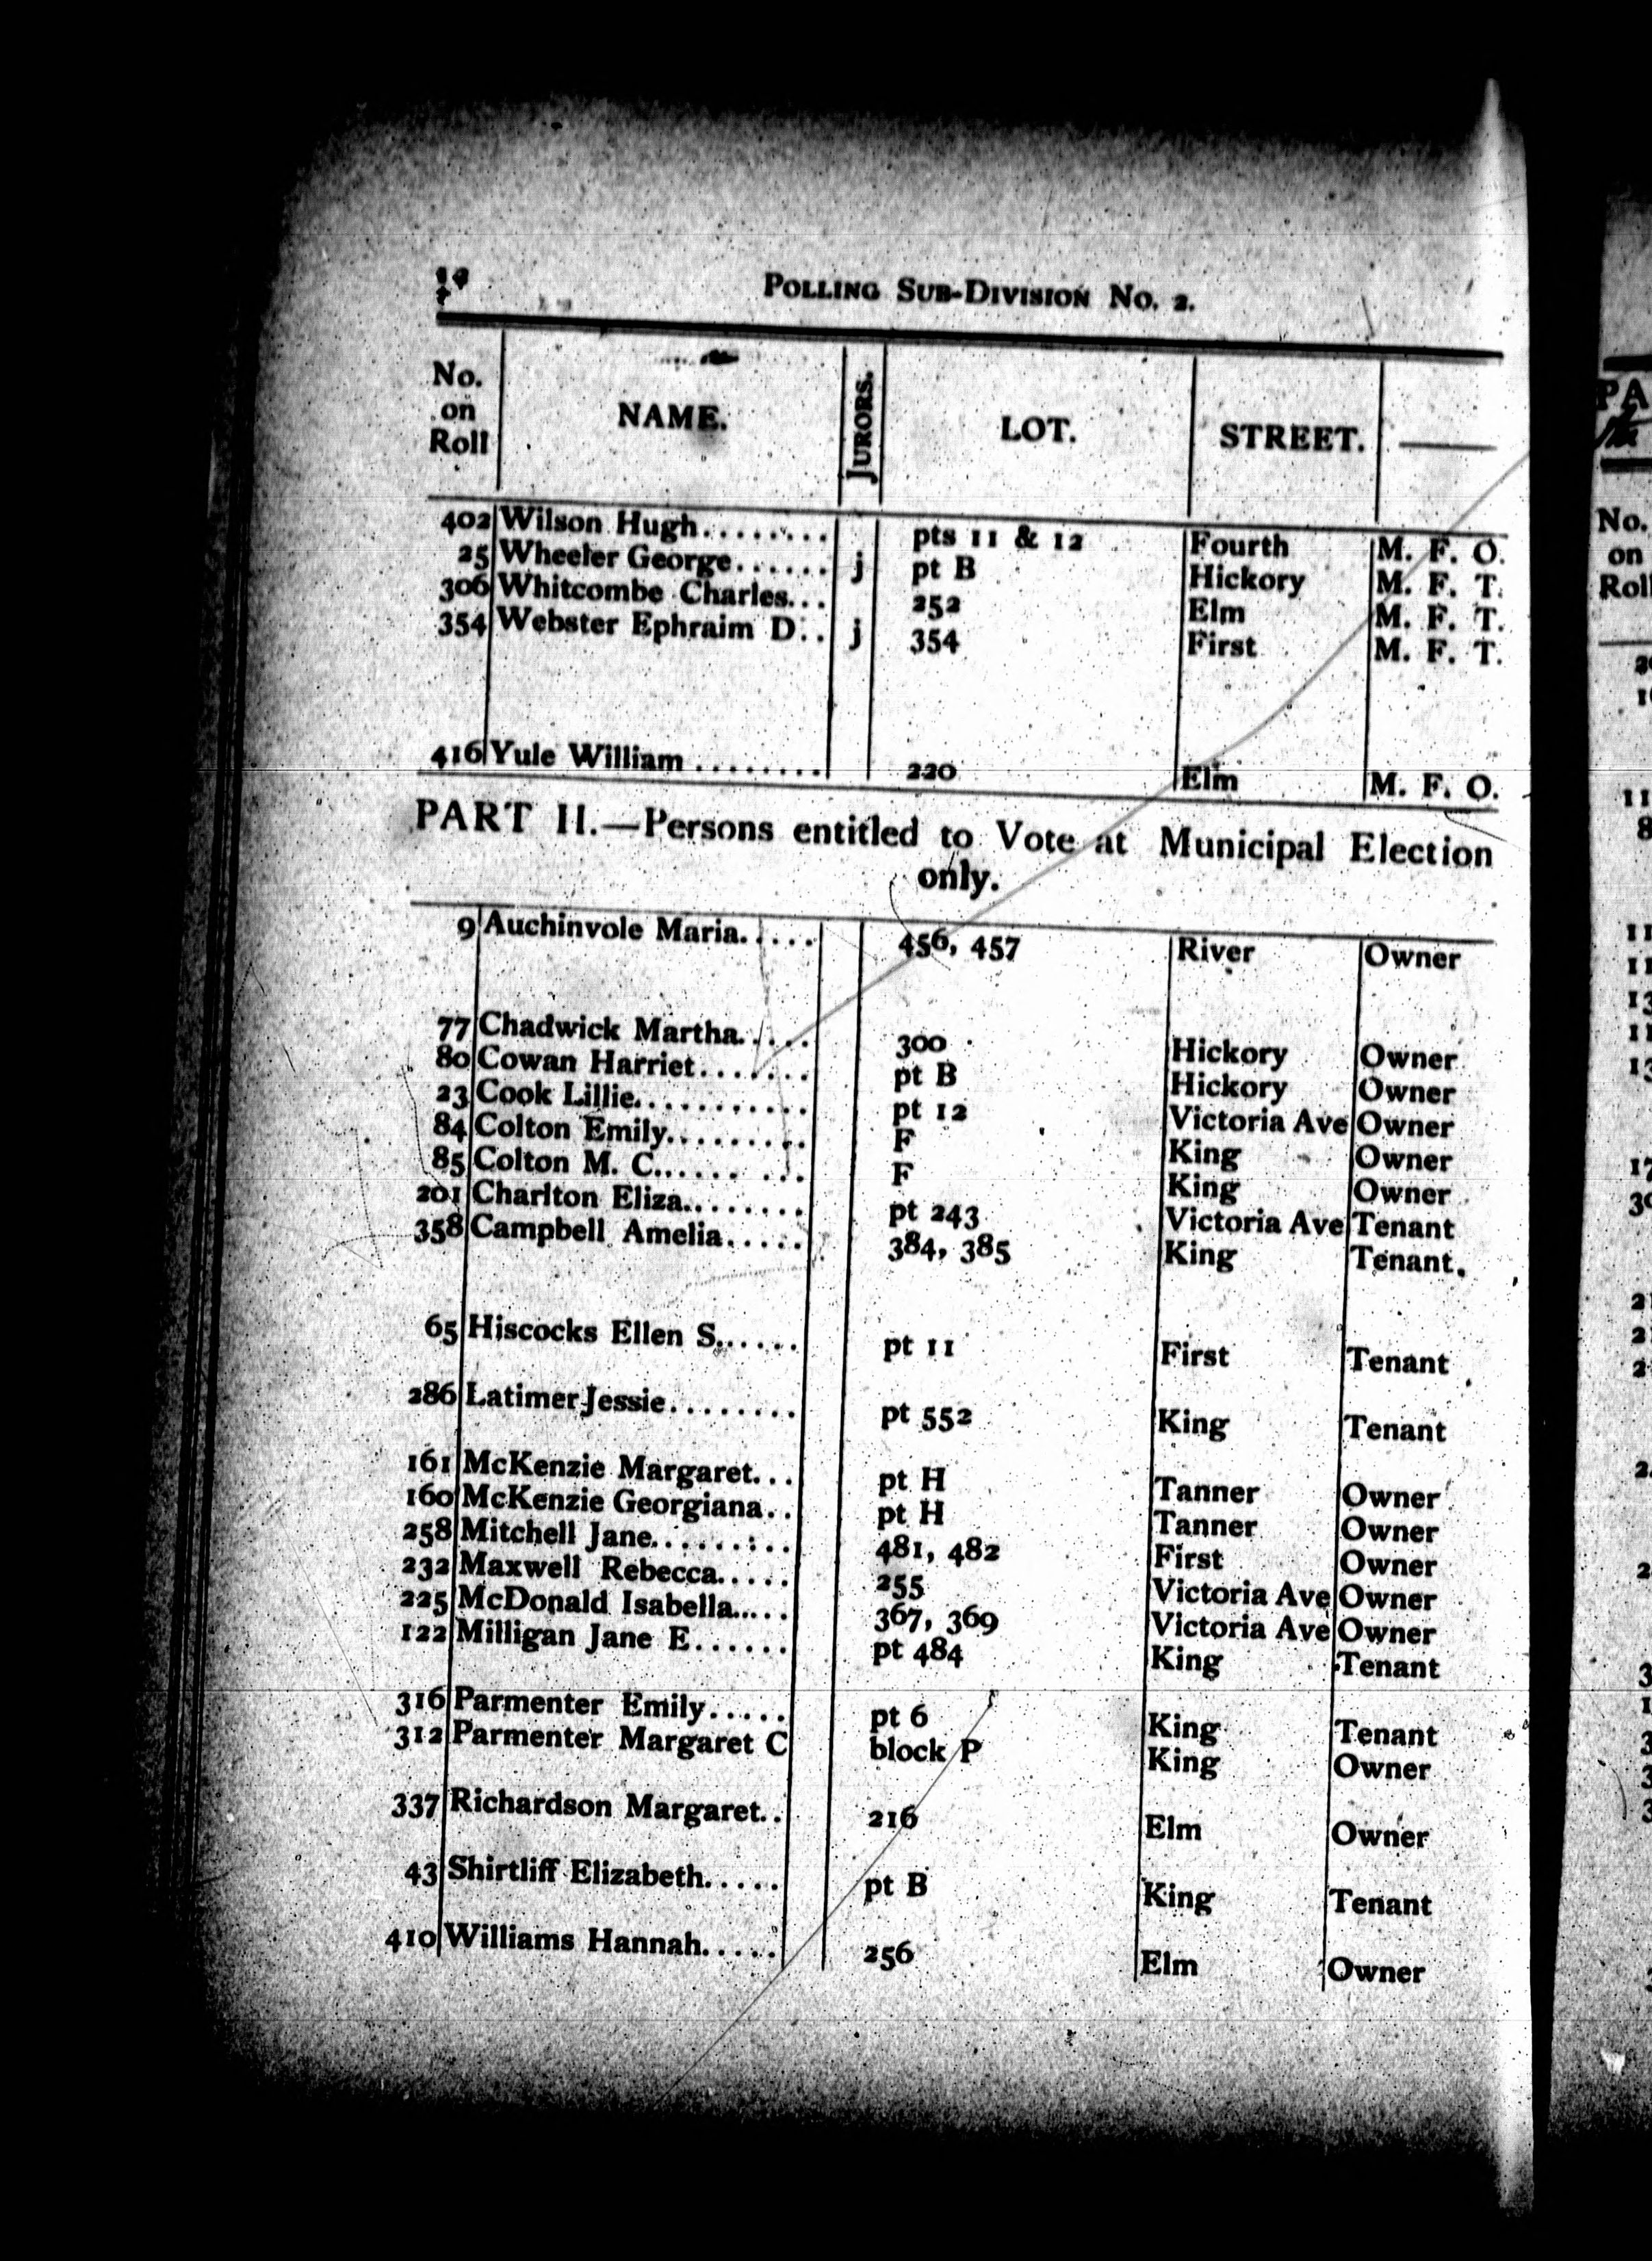 POLLING SUB-DIVISION No. 2.
No. on Roll NAME. JURORS. LOT. STREET.
402 Wilson Hugh........ pts 11 & 12 Fourth M. F. O.
25 Wheeler George...... j pt B Hickory M. F. T.
306 Whitcombe Charles... 252 Elm M. F. T.
354 Webster Ephraim D... j 354 First M. F. T.
416 Yule William ........ 220 Elm M. F. O.
PART II.—Persons entitled to Vote at Municipal Election
only.
9 Auchinvole Maria..... 456, 457 River Owner
77 Chadwick Martha..... 300 Hickory Owner
80 Cowan Harriet....... pt B Hickory Owner
23 Cook Lillie........... pt 12 Victoria Ave Owner
84 Colton Emily......... F King Owner
85 Colton M. C......... F King Owner
201 Charlton Eliza........ pt 243 Victoria Ave Tenant
358 Campbell Amelia..... 384, 385 King Tenant.
65 Hiscocks Ellen S...... pt 11 First Tenant
286 Latimer Jessie........ pt 552 King Tenant
161 McKenzie Margaret... pt H Tanner Owner
160 McKenzie Georgiana.. pt H Tanner Owner
258 Mitchell Jane......... 481, 482 First Owner
232 Maxwell Rebecca..... 255 Victoria Ave Owner
225 McDonald Isabella..... 367, 369 Victoria Ave Owner
122 Milligan Jane E...... pt 484 King Tenant
316 Parmenter Emily..... pt 6 King Tenant
312 Parmenter Margaret C block P King Owner
337 Richardson Margaret.. 216 Elm Owner
43 Shirtliff Elizabeth..... pt B King Tenant
410 Williams Hannah..... 256 Elm Owner
PA
No.
on